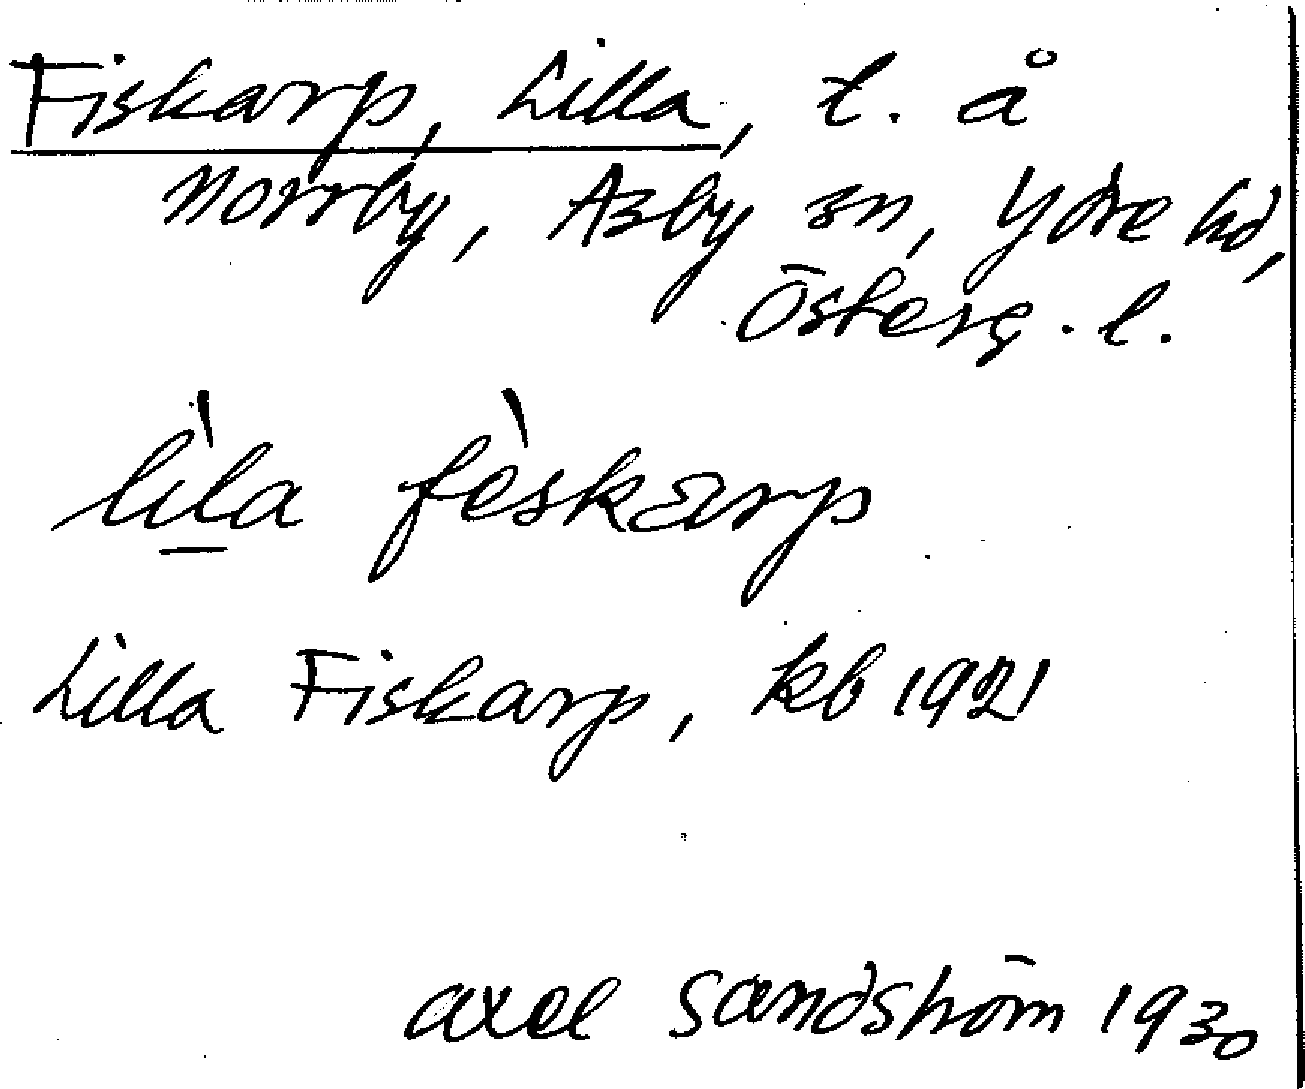 Fiskarp, Lilla, t. å
Norrby, Asby sn, Ydre hd,
Österg. l.
lìla fèskarp
Lilla Fiskarp, kb 1921
Axel Sandström 1930